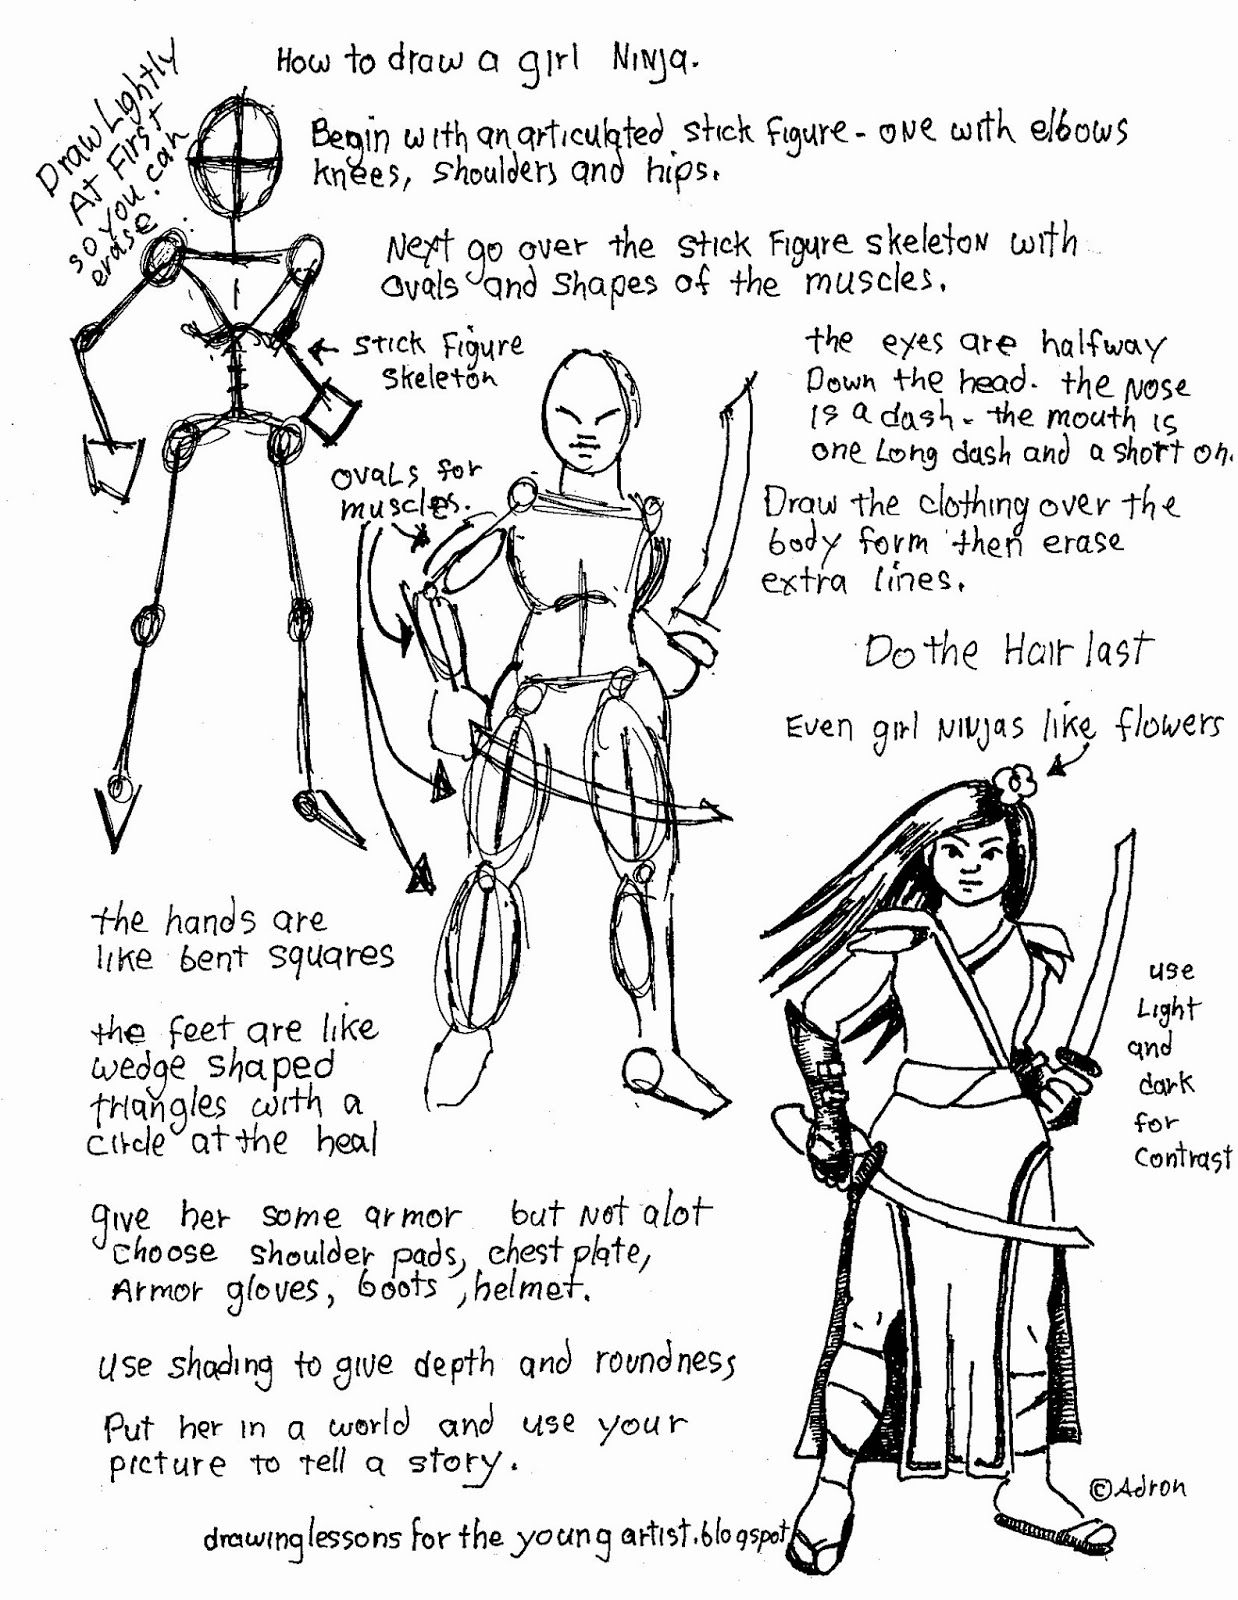 How to draw a girl Ninja.
Draw Lightly
At First
so you can
erase.
Begin with an articulated stick figure - one with elbows
knees, shoulders and hips.
Next go over the stick figure skeleton with
ovals and shapes of the muscles.
← stick figure
skeleton
the eyes are halfway
Down the head. the nose
is a dash - the mouth is
one Long dash and a short on.
ovals for
muscles.
Draw the clothing over the
body form then erase
extra lines.
Do the Hair last
Even girl ninjas like flowers
the hands are
like bent squares
use
Light
and
dark
for
contrast
the feet are like
wedge shaped
triangles with a
circle at the heal
give her some armor but not alot
choose shoulder pads, chest plate,
Armor gloves, boots, helmet.
use shading to give depth and roundness
Put her in a world and use your
picture to tell a story.
©Adron
drawing lessons for the young artist.blogspot